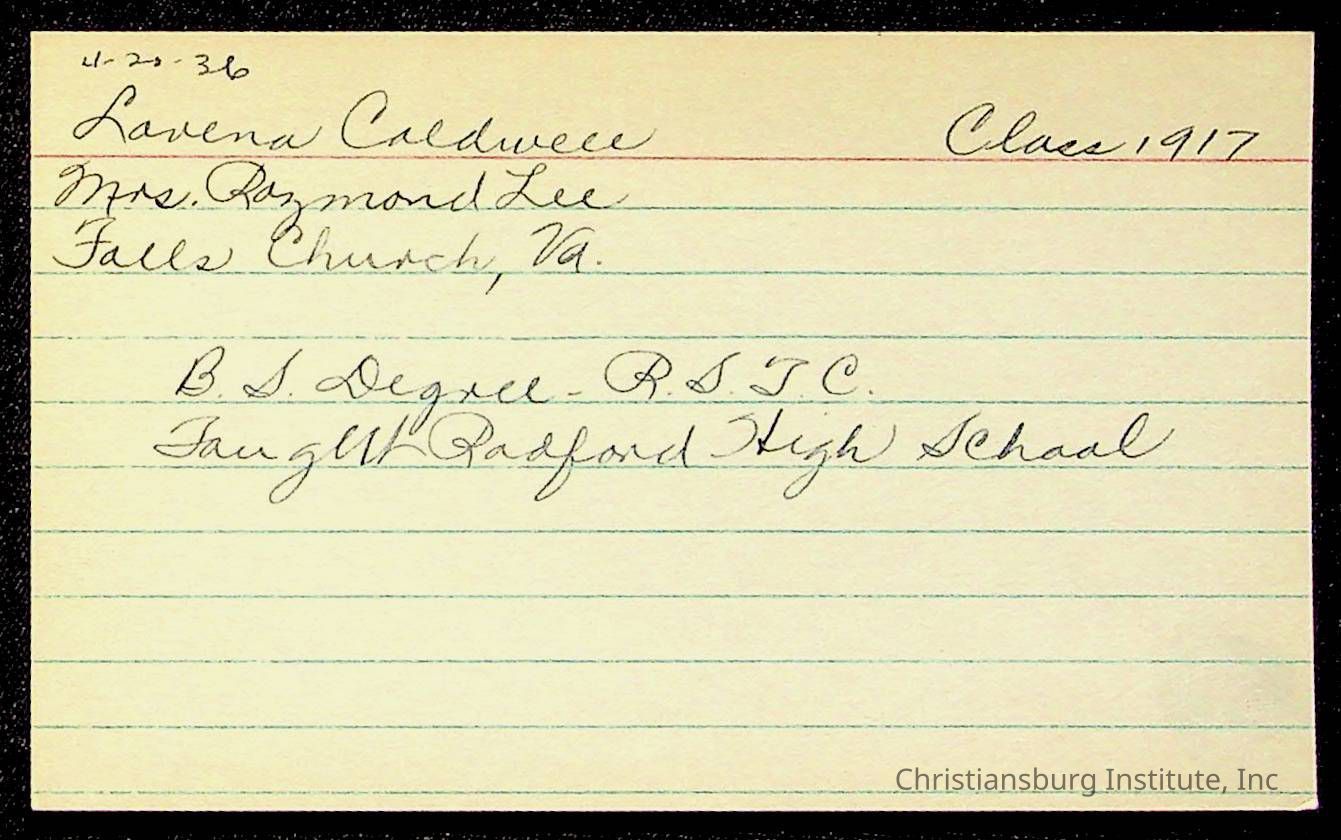 4-20-36
Lavena Caldwell Class 1917
Mrs. Raymond Lee
Falls Church, Va.
B. S. Degree - R. S. T. C.
Taught Radford High School
Christiansburg Institute, Inc